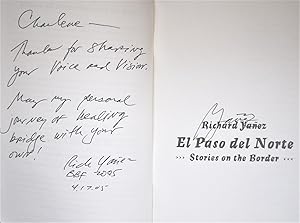 Charlene —
Thanks for sharing
your Voice and Vision.
May my personal
journey of healing
bridge with your
own!
Rich Yañez
BBF 2005
4.17.05
Yañez
Richard Yañez
El Paso del Norte
··· Stories on the Border ···